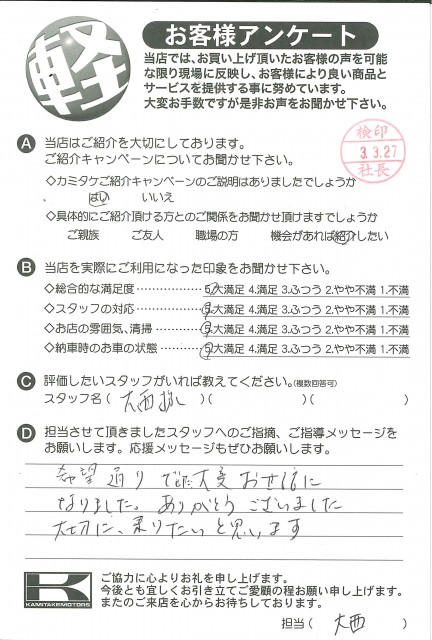 軽
お客様アンケート
当店では、お買い上げ頂いたお客様の声を可能
な限り現場に反映し、お客様により良い商品と
サービスを提供する事に努めています。
大変お手数ですが是非お声をお聞かせ下さい。
検印
3.3.27
社長
A 当店はご紹介を大切にしております。
ご紹介キャンペーンについてお聞かせ下さい。
◇カミタケご紹介キャンペーンのご説明はありましたでしょうか
はい いいえ
◇具体的にご紹介頂ける方とのご関係をお聞かせ頂けますでしょうか
ご親族 ご友人 職場の方 機会があれば紹介したい
B 当店を実際にご利用になった印象をお聞かせ下さい。
◇総合的な満足度……………5.大満足 4.満足 3.ふつう 2.やや不満 1.不満
◇スタッフの対応……………5.大満足 4.満足 3.ふつう 2.やや不満 1.不満
◇お店の雰囲気、清掃………5.大満足 4.満足 3.ふつう 2.やや不満 1.不満
◇納車時のお車の状態………5.大満足 4.満足 3.ふつう 2.やや不満 1.不満
C 評価したいスタッフがいれば教えてください。(複数回答可)
スタッフ名( 大西 )( )( )
D 担当させて頂きましたスタッフへのご指摘、ご指導メッセージを
お願いします。応援メッセージもぜひお願いします。
希望通りで大変お世話に
なりました。ありがとうございました
大切に、乗りたいと思います
K
KAMITAKEMOTORS
ご協力に心よりお礼を申し上げます。
今後とも宜しくお引き立てご愛顧の程お願い申し上げます。
またのご来店を心からお待ちしております。
担当( 大西 )